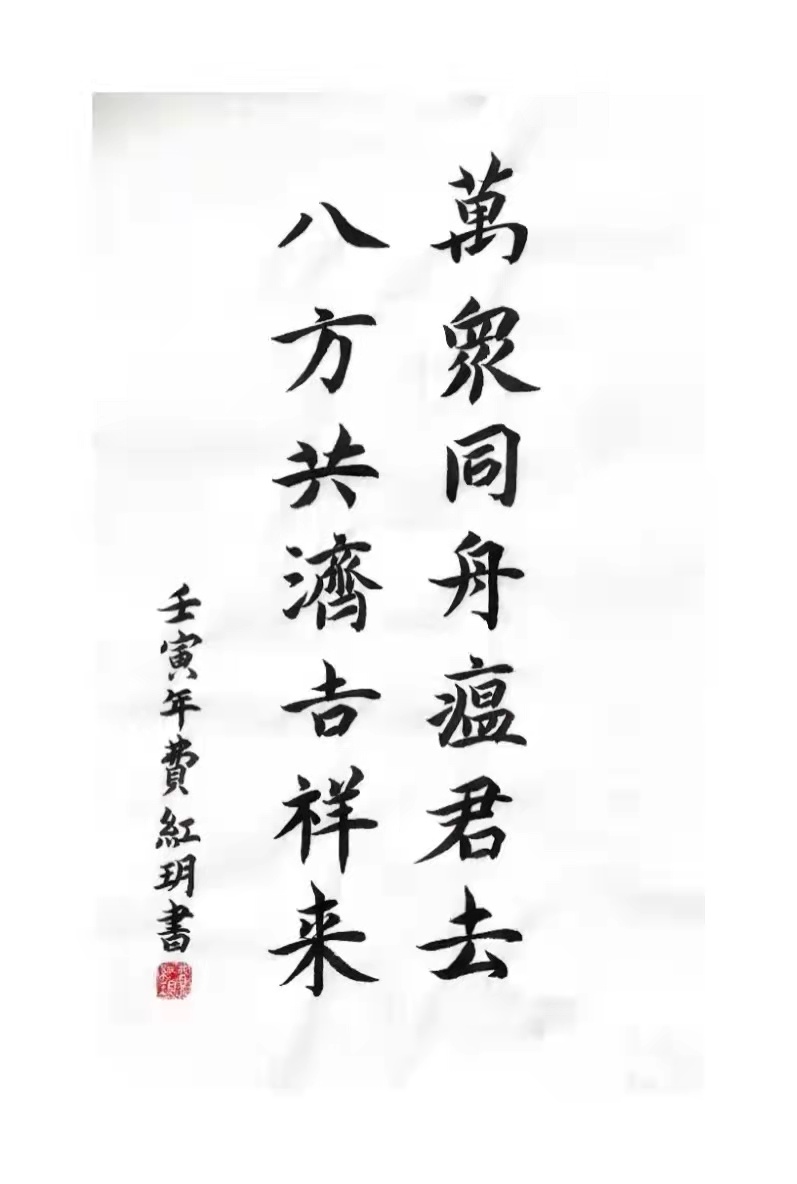 萬眾同舟瘟君去
八方共濟吉祥来
壬寅年費紅玥書